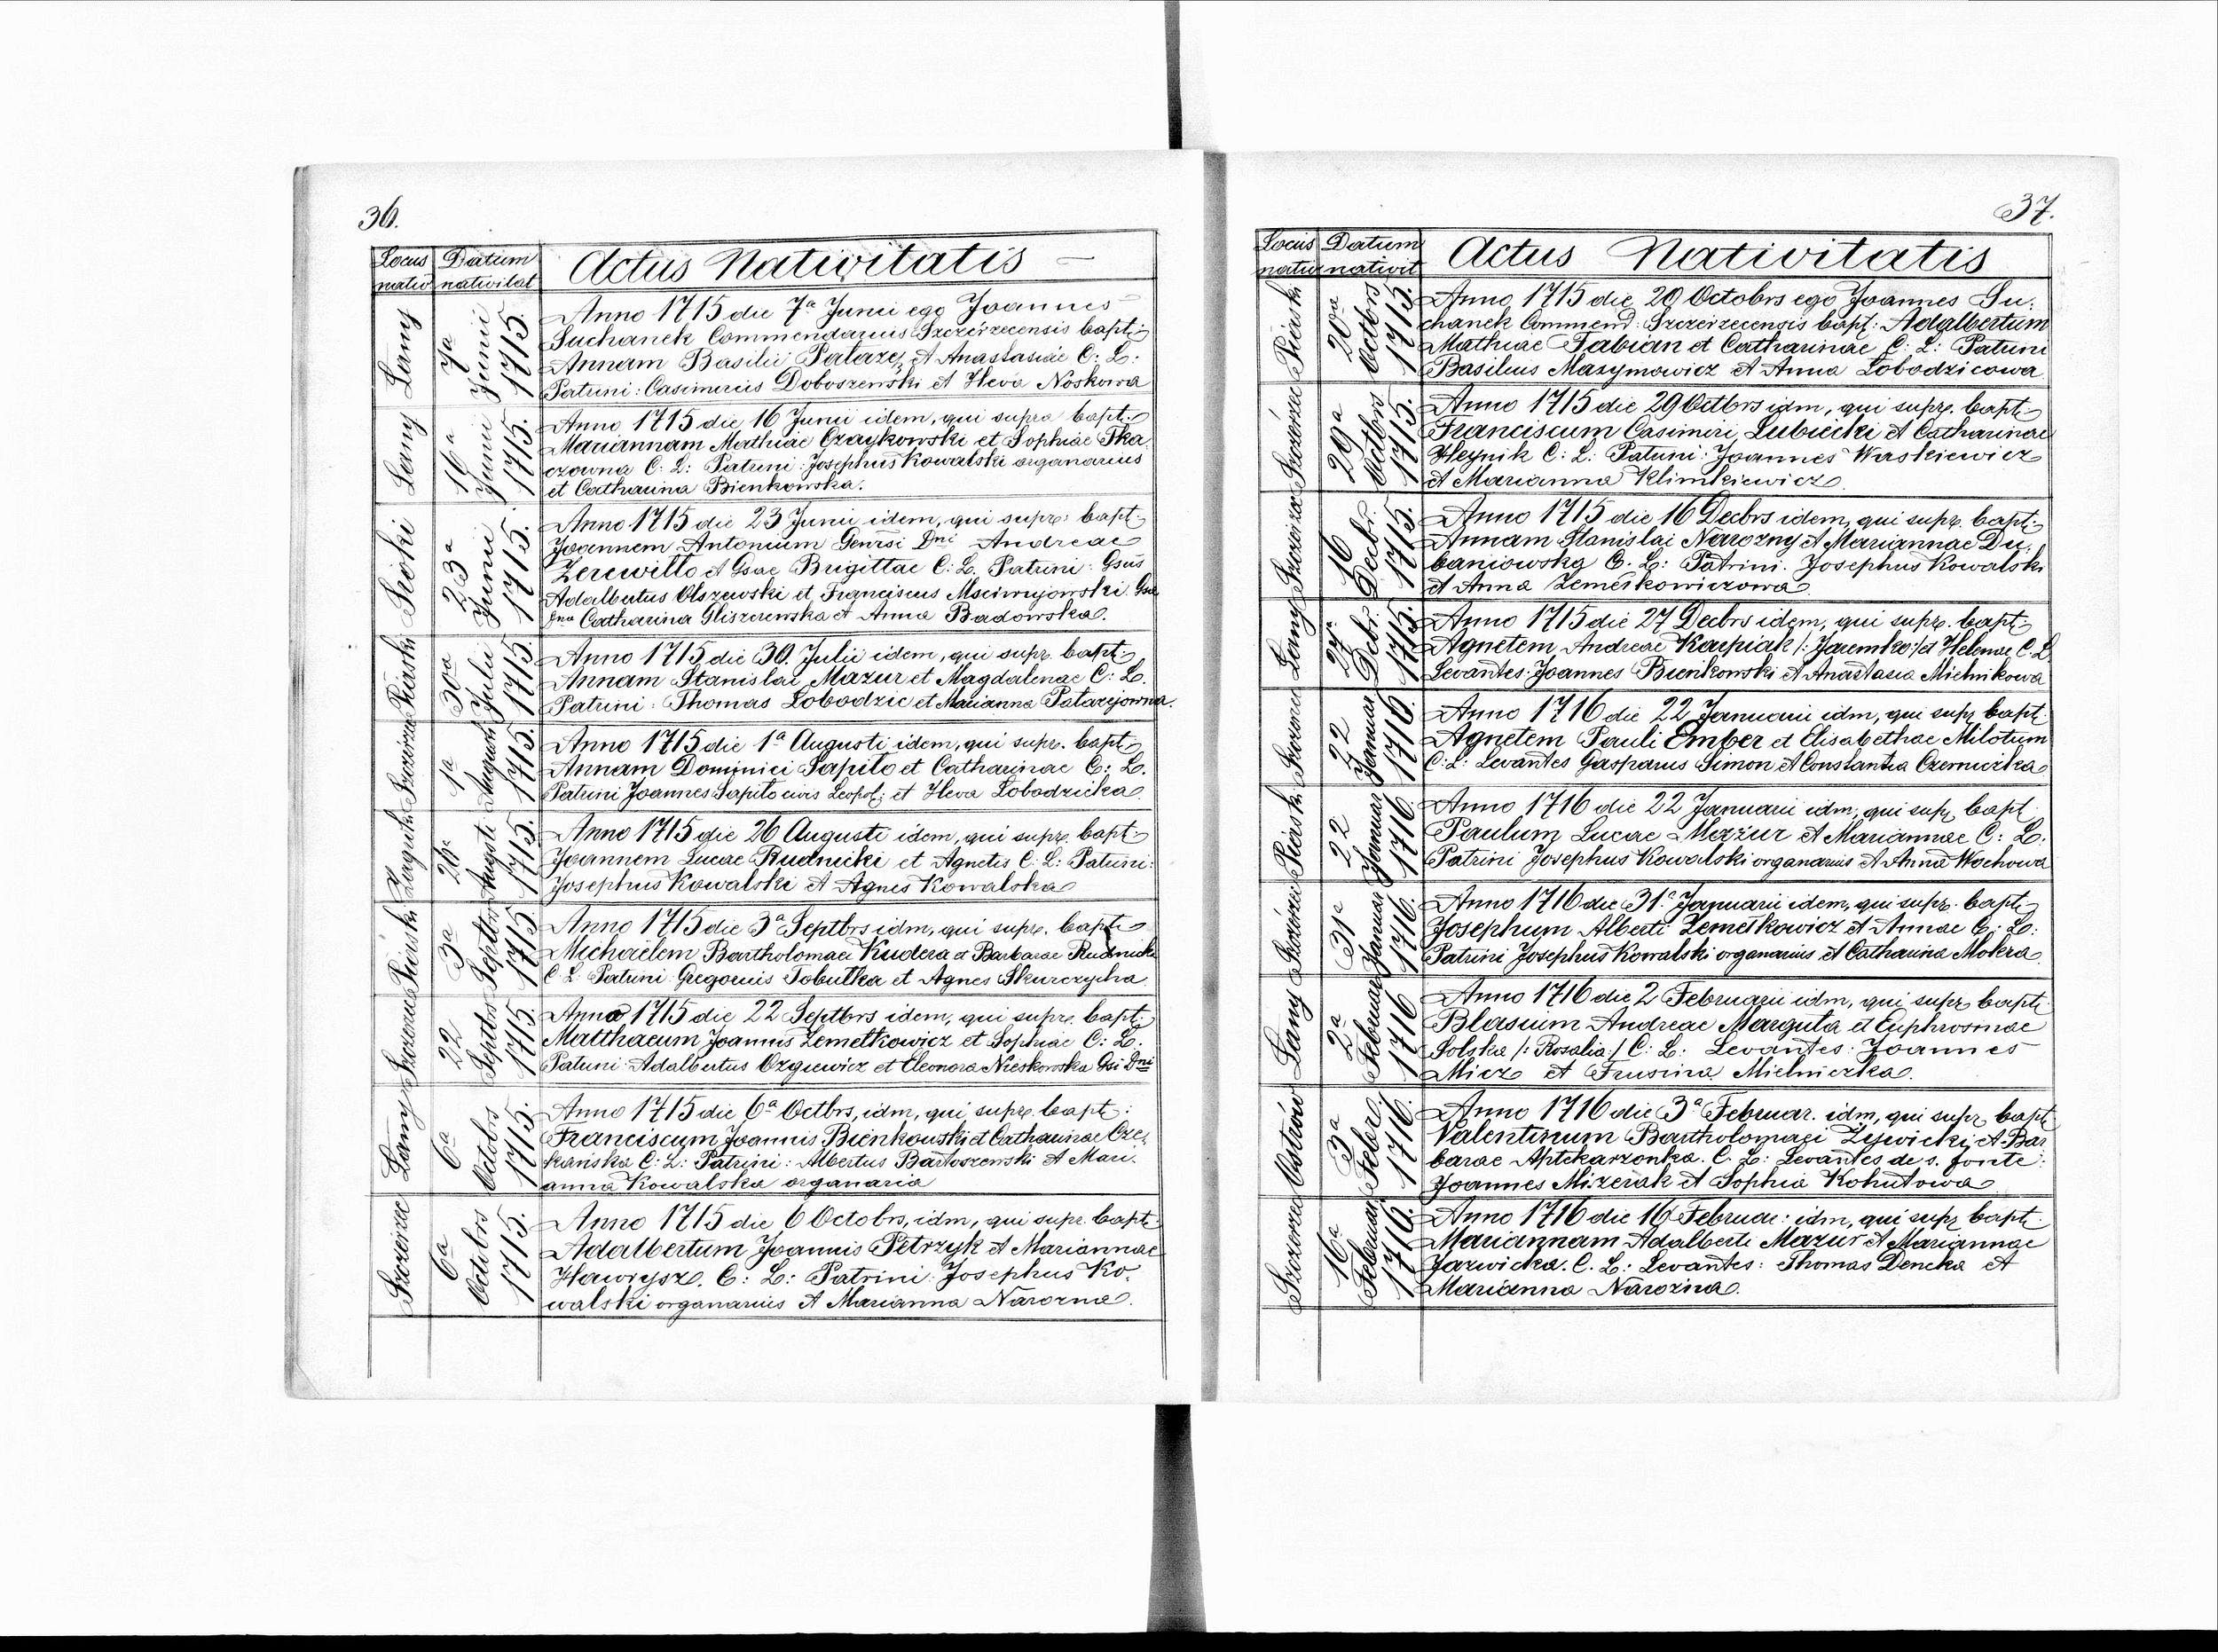 36.
Locus nativ
Datum nativitat
Actus Nativitatis
Łany
7a Junii 1715.
Anno 1715 die 7a Junii ego Joannes
Suchanek Commendarius Szczerzecensis bapt:
Annam Basilii Patazej et Anastasiae C: L:
Patrini: Casimirus Doboszewski et Heva Noskowa
Łany
16a Junii 1715.
Anno 1715 die 16 Junii idem, qui supra bapt:
Mariannam Mathiae Czaykowski et Sophiae Tka
czowna C: L: Patrini: Josephus Kowalski organarius
et Catharina Bienkowska.
Siołki
23a Junii 1715.
Anno 1715 die 23 Junii idem, qui supr: bapt:
Joannem Antonium Genrsi Dni Andreae
Zerewillo et Gsae Brigittae C: L. Patrini: Gsus
Adalbertus Olszewski et Franciscus Msciwujowski Gsa
Jna Catharina Gliszczewska et Anna Badowska.
Piaski
30a Julii 1715.
Anno 1715 die 30. Julii idem, qui supr. bapt:
Annam Stanislai Mazur et Magdalenae C: L.
Patrini: Thomas Lobodzic et Marianna Patazejowna.
1a Augusti 1715
Anno 1715 die 1a Augusti idem, qui supr. bapt:
Annam Dominici Sapito et Catharinae C: L.
Patrini Joannes Sapito civis Leopol: et Heva Lobodzicka
26. Augsti 1715
Anno 1715 die 26 Augusti idem, qui supr. bapt:
Joannem Lucae Rudnicki et Agnetis C: L: Patrini:
Josephus Kowalski et Agnes Kowalska
Piaski
3a Septbr 1715
Anno 1715 die 3a Septbrs idm, qui supr. bapt:
Michaelem Bartholomaei Kudera et Barbarae Rudnicki
C L: Patrini Gregorius Tobutka et Agnes Skurczycha
22 Septbrs 1715
Anno 1715 die 22 Septbrs idem, qui supr. bapt:
Matthaeum Joannis Zemełkowicz et Sophiae C: L:
Patrini: Adalbertus Ozgiewicz et Eleonora Nieskowska Gsi Dni
Łany
6a Octobrs 1715.
Anno 1715 die 6a Octbrs, idm, qui supr. bapt:
Franciscum Joannis Bienkowski et Catharinae Cze,
kańska C: L: Patrini: Albertus Bartoszewski et Mari.
anna Kowalska organaria
Szczerzec
6a Octobrs 1715.
Anno 1715 die 6 Octobrs, idm, qui supr. bapt:
Adalbertum Joannis Petrzyk et Mariannae
Hawrysz. C: L: Patrini: Josephus Ko.
walski organarius et Marianna Narozna.
37.
Locus nativ
Datum nativit
Actus Nativitatis
Piaski
20a Octbrs 1715.
Anno 1715 die 20 Octobrs ego Joannes Su:
chanek Commend: Szczerzecensis bapt: Adalbertum
Mathiae Fabian et Catharinae C: L: Patrini
Basilius Maxymowicz et Anna Lobodzicowa
Szczerzec
29a Octbrs 1715.
Anno 1715 die 29 Octbrs idm, qui supr. bapt:
Franciscum Casimiri Lubiecki et Catharinae
Heynik C: L: Patrini: Joannes Waskiewicz
et Marianna Klimkiewicz
Szczerzec
16 Decbr. 1715.
Anno 1715 die 16 Decbrs idem, qui supr. bapt:
Annam Stanislai Narozny et Mariannae Du,
baniowska C. L: Patrini. Josephus Kowalski
et Anna Zemełkowiczowa
Łany
27a Decbr. 1715.
Anno 1715 die 27 Decbrs idem, qui supr. bapt:
Agnetem Andreae Karpiak /: Jaremko:/ et Helenae C. L
Levantes: Joannes Bienkowski et Anastasia Mielnikowa
Szczerzec
22 Januar 1716
Anno 1716 die 22 Januarii idm, qui supr bapt:
Agnetem Pauli Ember et Elisabethae Milotum
C: L: Levantes Gasparus Simon et Constantia Czernuszka
Piaski
22 Januar 1716
Anno 1716 die 22 Januarii idm, qui supr bapt
Paulum Lucae Mazur et Mariannae C: L:
Patrini Josephus Kowalski organarius et Anna Wochowa
Szczerzec
31a Januar 1716.
Anno 1716 die 31a Januarii idem, qui supr. bapt:
Josephum Alberti Zemełkowicz et Annae C: L:
Patrini Josephus Kowalski organarius et Catharina Mokra
Łany
2a Februar 1716
Anno 1716 die 2 Februarii idm, qui supr bapt:
Blasium Andreae Marguta et Euphrosinae
Solska /: Rosalia:/ C: L: Levantes: Joannes
Micz et Frusina Mielniczka.
Ostrów
3a Febr. 1716.
Anno 1716 die 3a Februar. idm, qui supr bapt
Valentinum Bartholomaei Zywicki et Bar
barae Aptekarzonka. C. L: Levantes de s. fonte:
Joannes Mizerak et Sophia Kohutowa
Szczerzec
16a Februar 1716.
Anno 1716 die 16 Februar: idm, qui supr bapt:
Mariannam Adalberti Mazur et Mariannae
Jazwicka. C. L: Levantes: Thomas Dencka et
Marianna Narozna.